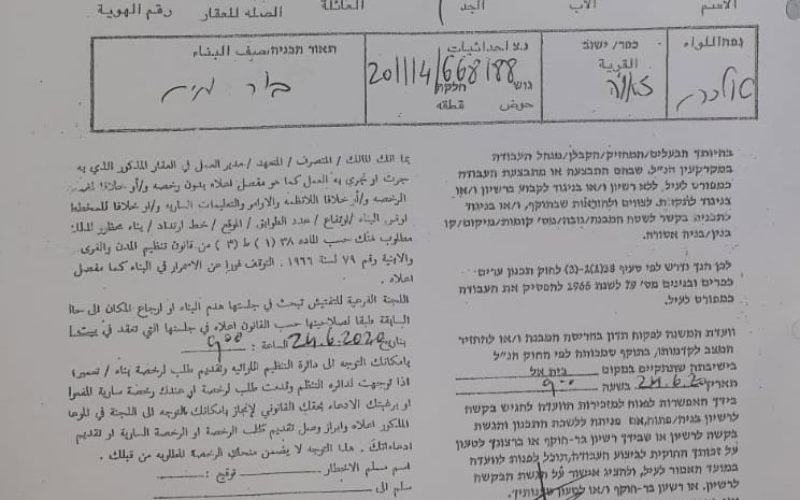 الاسم الاب الجد العائلة الصله للعقار رقم الهوية
נפה/اللواء
כפר/ישוב
القرية
נ.צ/احداثيات
201114/668188
גוש חלקה
حوض قطعه
תאור הבניה/صيف البناء
בור מים
بما انك المالك / المتصرف / المتعهد / مدير العمل في العقار المذكور الذي به
جرت او تجري به العمل كما هو مفصل اعلاه بدون رخصه و/أو خلافا
الرخصه و/أو خلافا للانظمه والاوامر والتعليمات الساريه و/او خلافا للمخطط
البناء /ارتفاع / عدد الطوابق / الموقع / خط ارتداد / بناء محظور لذلك
مطلوب منك حسب الماده ٣٨ (١) ط (٣) من قانون تنظيم المدن والقرى
والابنية رقم ٧٩ لسنة ١٩٦٦ . التوقف فورا عن الاستمرار في البناء كما مفصل
اعلاه .
اللجنة الفرعية للتفتيش تبحث في جلستها هدم البناء او ارجاع المكان الى
السابقة طبقا لصلاحيتها حسب القانون اعلاه في جلستها التي تعقد في
بتاريخ 24.6.2020 الساعة : 9:00
بامكانك التوجه الى دائرة التنظيم اللوائيه وتقديم طلب لرخصة بناء /
اذا توجهت لدائره التنظم وقدمت طلب لرخصة او عندك رخصة سارية
او برغبتك الادعاء بحقك القانوني لإنجاز بامكانك التوجه الى اللجنة في
المذكور اعلاه وابراز وصل تقديم طلب الرخصة او الرخصة السارية او تقديم
ادعاءاتك . هذا التوجه لا يضمن منحك الرخصة المطلوبه من قبلك .
اسم مسلم الاخطار توقيع :
سلم الى
בהיותך הבעלים/המחזיק/הקבלן/מנהל העבודה
במקרקעין הנ"ל, שבהם התבצעה או מתבצעת העבודה
כמפורט לעיל, ללא רשיון ו/או בניגוד לקבוע ברשיון ו/או
בניגוד לתקנות, לצווים ולהוראות שבתוקף, ו/או בניגוד
לתכניה בקשר לשטח המבנה/גובה/מס' קומות/מיקום/קו
בנין/בניה אסורה.
לכן הנך נדרש לפי סעיף 38(1)(ב-3) לחוק תכנון ערים
כפרים ובנינים מס' 79 לשנת 1966 להפסיק את העבודה
כמפורט לעיל.
וועדת המשנה לפקוח תדון בהריסת המבנה ו/או להחזיר
המצב לקדמותו, בתוקף סמכותה לפי החוק הנ"ל
בישיבתה שתתקיים במקום בית אל
תאריך 24.6.20 בשעה 9:00
בידך האפשרות לפנות למזכירות הוועדה להגיש בקשה
לרשיון בניה/פתוח, אם פנית ללשכת התכנון והגשת
בקשה לרשיון או שבידך רשיון בר-תוקף או ברצונך לטעון
על זכותך החוקית לביצוע העבודה, תוכל לפנות לוועדה
במועד האמור לעיל, ולהציג אישור על הגשת הבקשה
לרשיון, או רשיון בר-תוקף ו/או לטעון טענותיך.